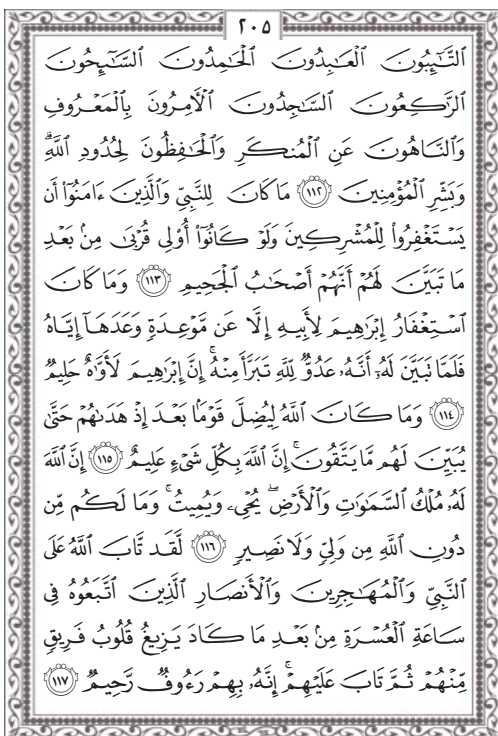 ٢٠٥
ٱلتَّـٰٓئِبُونَ ٱلْعَـٰبِدُونَ ٱلْحَـٰمِدُونَ ٱلسَّـٰٓئِحُونَ
ٱلرَّٰكِعُونَ ٱلسَّـٰجِدُونَ ٱلْـَٔامِرُونَ بِٱلْمَعْرُوفِ
وَٱلنَّاهُونَ عَنِ ٱلْمُنكَرِ وَٱلْحَـٰفِظُونَ لِحُدُودِ ٱللَّهِۗ
وَبَشِّرِ ٱلْمُؤْمِنِينَ ١١٢ مَا كَانَ لِلنَّبِىِّ وَٱلَّذِينَ ءَامَنُوٓا۟ أَن
يَسْتَغْفِرُوا۟ لِلْمُشْرِكِينَ وَلَوْ كَانُوٓا۟ أُو۟لِى قُرْبَىٰ مِنۢ بَعْدِ
مَا تَبَيَّنَ لَهُمْ أَنَّهُمْ أَصْحَـٰبُ ٱلْجَحِيمِ ١١٣ وَمَا كَانَ
ٱسْتِغْفَارُ إِبْرَٰهِيمَ لِأَبِيهِ إِلَّا عَن مَّوْعِدَةٍ وَعَدَهَآ إِيَّاهُ
فَلَمَّا تَبَيَّنَ لَهُۥٓ أَنَّهُۥ عَدُوٌّ لِّلَّهِ تَبَرَّأَ مِنْهُۚ إِنَّ إِبْرَٰهِيمَ لَأَوَّٰهٌ حَلِيمٌ
١١٤ وَمَا كَانَ ٱللَّهُ لِيُضِلَّ قَوْمًۢا بَعْدَ إِذْ هَدَىٰهُمْ حَتَّىٰ
يُبَيِّنَ لَهُم مَّا يَتَّقُونَۚ إِنَّ ٱللَّهَ بِكُلِّ شَىْءٍ عَلِيمٌ ١١٥ إِنَّ ٱللَّهَ
لَهُۥ مُلْكُ ٱلسَّمَـٰوَٰتِ وَٱلْأَرْضِۖ يُحْىِۦ وَيُمِيتُۚ وَمَا لَكُم مِّن
دُونِ ٱللَّهِ مِن وَلِىٍّ وَلَا نَصِيرٍ ١١٦ لَّقَد تَّابَ ٱللَّهُ عَلَى
ٱلنَّبِىِّ وَٱلْمُهَـٰجِرِينَ وَٱلْأَنصَارِ ٱلَّذِينَ ٱتَّبَعُوهُ فِى
سَاعَةِ ٱلْعُسْرَةِ مِنۢ بَعْدِ مَا كَادَ يَزِيغُ قُلُوبُ فَرِيقٍ
مِّنْهُمْ ثُمَّ تَابَ عَلَيْهِمْۚ إِنَّهُۥ بِهِمْ رَءُوفٌ رَّحِيمٌ ١١٧